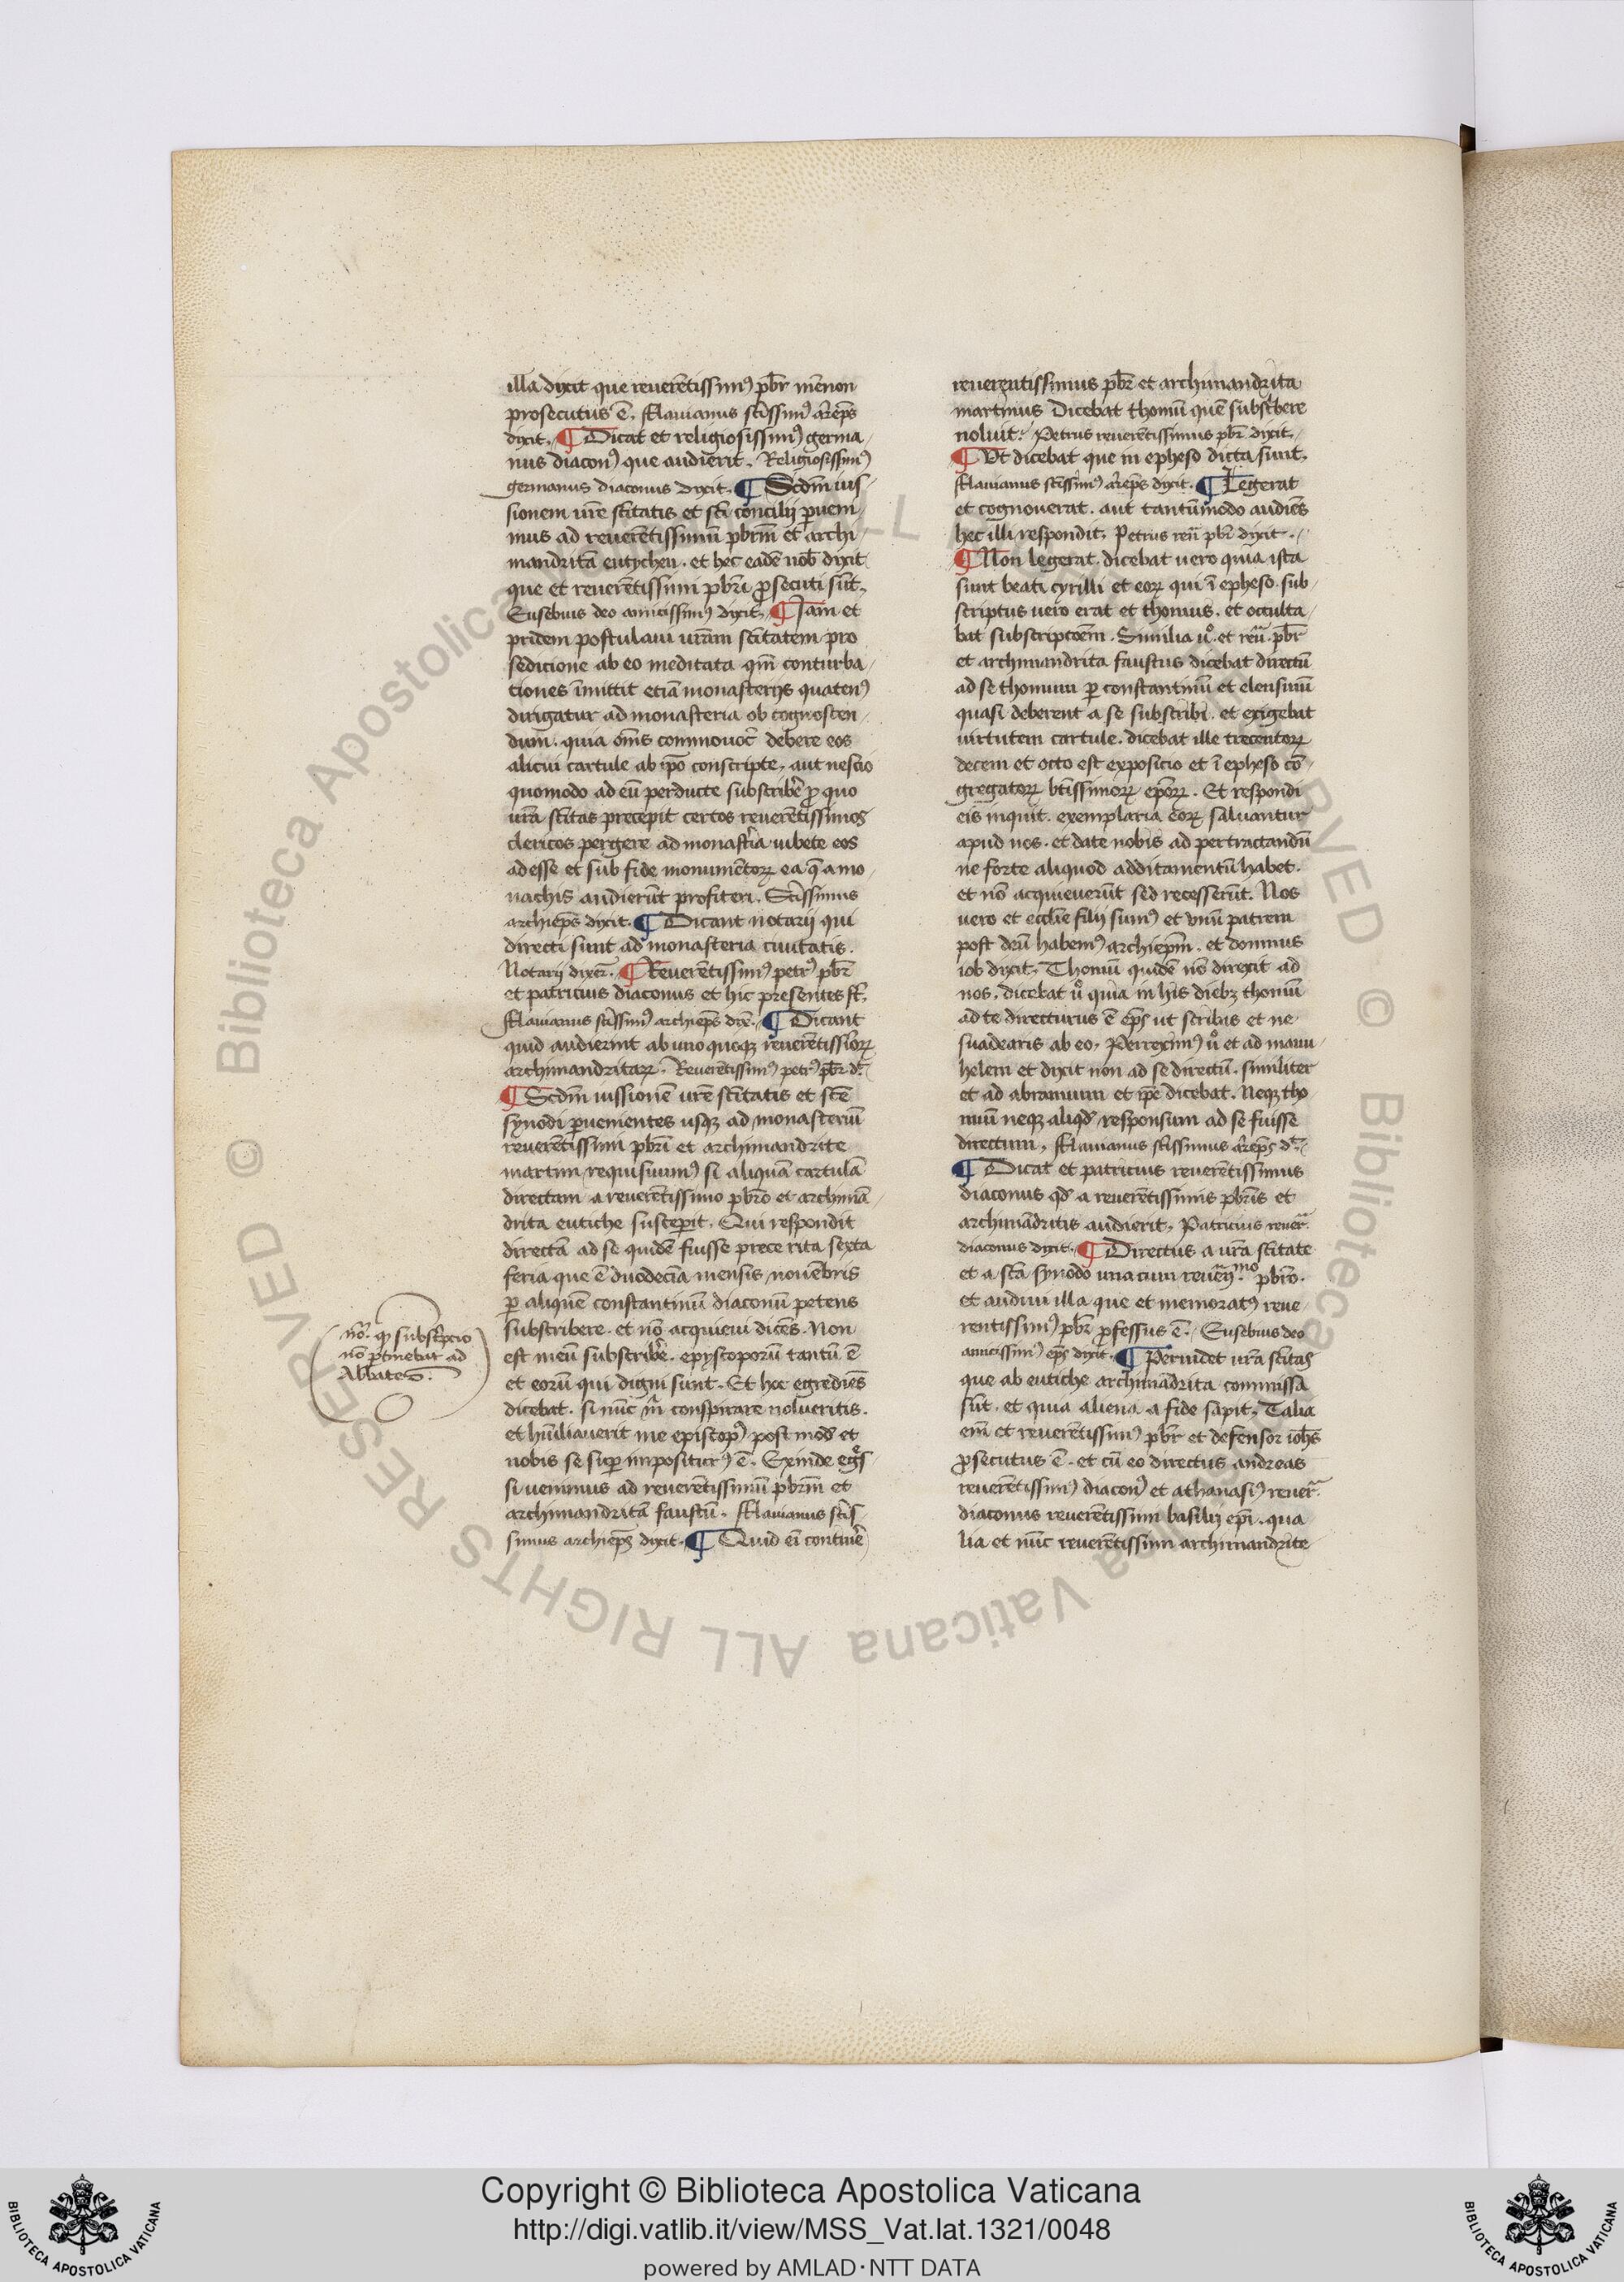 illa dixit que reuerētissimꝰ pbr̄ mēnon
prosecutus ē. Flauianus sctīssimꝰ arēps
dixit. ¶ Dicat et religiosissimꝰ germa
nus diaconꝰ que audierit. Religiosissimꝰ
germanus diaconus dixit. ¶ Scdm̄ ius
sionem ure sctītatis et sctī concilij ꝑueni
mus ad reuerētissimū pbrm̄ et archi
mandritā eutychen. et hec eadē nob̄ dixit
que et reuerētissimi pbrī ꝓsecuti sūt.
Eusebius deo amicissimꝰ dixit. ¶ Iam et
pridem postulaui urām sctītatem pro
sedicione ab eo meditata qm̄ conturba
tiones īmittit etiā monasterijs quatenꝰ
dirigatur ad monasteria ob cognoscen
dum. quia om̄s commouet̄ debere eos
alicui cartule ab ip̄o conscripte. aut nescio
quomodo ad eū perducte subscribē ꝓ quo
urā sctītas precepit certos reuerētissimos
clericos pergere ad monastīa iubete eos
adesse et sub fide monumētoꝝ ea q̄ a mo
nachis audierūt profiteri. Sctīssimus
archiep̄s dixit. ¶ Dicant notarij qui
directi sunt ad monasteria ciuitatis.
Notarij dixer̄. ¶ Reuerētissimꝰ petrꝰ pbr̄
et patricius diaconus et hic presentes st̄.
Flauianus sctīssimꝰ archiep̄s dix̄. ¶ Dicant
quid audierint ab unoquoqꝫ reuerētissīoꝝ
archimandritaꝝ. Reuerētissimꝰ petrꝰ pbr̄ dt̄
¶ Scdm̄ iussionē ure sctītatis et sctē
synodi ꝑuenientes usqꝫ ad monasteriū
reuerētissimi pbrī et archimandrite
martini requisiuimꝰ si aliquā cartulā
directam a reuerētissimo pbrō et archimā
drita eutiche susceperit. Qui respondit
directā ad se quidē fuisse preterita sexta
feria que ē duodecīa mensis nouēbris
ꝑ aliquē constantinū diaconū petens
subscribere. et nō acquieui dicēs. Non
est meū subscribē. epyscoporū tantū ē
et eorū qui digni sunt. Et hoc egrediēs
dicebat. si nūc m̄ conspirare nolueritis.
et hūiliauerit me episcopꝰ post mod̄ et
nobis se suꝑ impositurꝰ ē. Exinde egs̄
si uenimus ad reuerētissimū pbrm̄ et
archimandritā faustū. Flauianus sctīs
simus archiep̄s dixit. ¶ Quid ei continē
nō. qꝫ subscrīptio
nō ꝑtinebat ad
Abbates.
reuerentissimus pbr̄ et archimandrita
martinus Dicebat thomū quē subscībere
noluit. Petrus reuerētissimus pbr̄ dixit.
¶ Vt dicebat que in epheso dicta sunt.
Flauianus sctīssimꝰ arēps dixit. ¶ Legerat
et cognouerat. aut tantūmodo audiēs
hec illi respondit. Petrus reū pbr̄ dixit.
¶ Non legerat. dicebat uero quia ista
sunt beati cyrilli et eoꝝ qui ī epheso. sub
scriptus uero erat et thomus. et occulta
bat subscriptoēm. Similia uº. et reū. pbr̄
et archimandrita faustus dicebat directū
ad se thomum ꝑ constantinū et eleusinū
quasi deberent a se subscribi. et exigebat
uirtutem cartule. dicebat ille trecentoꝝ
decem et octo est exposicio et ī epheso cō
gregatoꝝ btīssimoꝝ ep̄oꝝ. Et respondi
eis inquit. exemplaria eoꝝ saluantur
apud nos. et date nobis ad pertractandū
ne forte aliquod additamentū habet.
et nō acquieuerūt sed recesserūt. Nos
uero et eccl̄ie filij sumꝰ et vnū patrem
post deū habemꝰ archiepm̄. et domnus
iob dixit. Thomū quidē nō direxit ad
nos. dicebat uº quia in his diebꝫ thomū
ad te directurus ē ep̄s ut scribis et ne
suadearis ab eo. Perreximꝰ uº et ad manu
helem et dixit non ad se directū. similiter
et ad abramum et ip̄e dicebat. Neqꝫ tho
mū neqꝫ aliqd̄ responsum ad se fuisse
directum. Flauianus sctīssimus arēps dt̄
¶ Dicat et patricius reuerētissimus
diaconus qd̄ a reuerētissimis pbrīs et
archimādritis audierit. Patricius reuer̄.
diaconus dixit. ¶ Directus a urā sctītate
et a sctā synodo una cum reuer̄.mo pbrō.
et audiui illa que et memoratꝰ reue
rentissimꝰ pbr̄ ꝓfessus ē. Eusebius deo
amicissimꝰ ep̄s dixit. ¶ Peruidet urā sctītas
que ab eutiche archimādrita commissa
sūt. et quia aliena a fide sapit. Talia
em̄ et reuerētissimꝰ pbr̄ et defensor ioh̄s
ꝓsecutus ē. et cū eo directus andreas
reuerētissimꝰ diaconꝰ et athanasiꝰ reuer̄.
diaconus reuerētissimi basilij ep̄i. qua
lia et nūc reuerētissimi archimandrite
Copyright © Biblioteca Apostolica Vaticana
http://digi.vatlib.it/view/MSS_Vat.lat.1321/0048
powered by AMLAD·NTT DATA